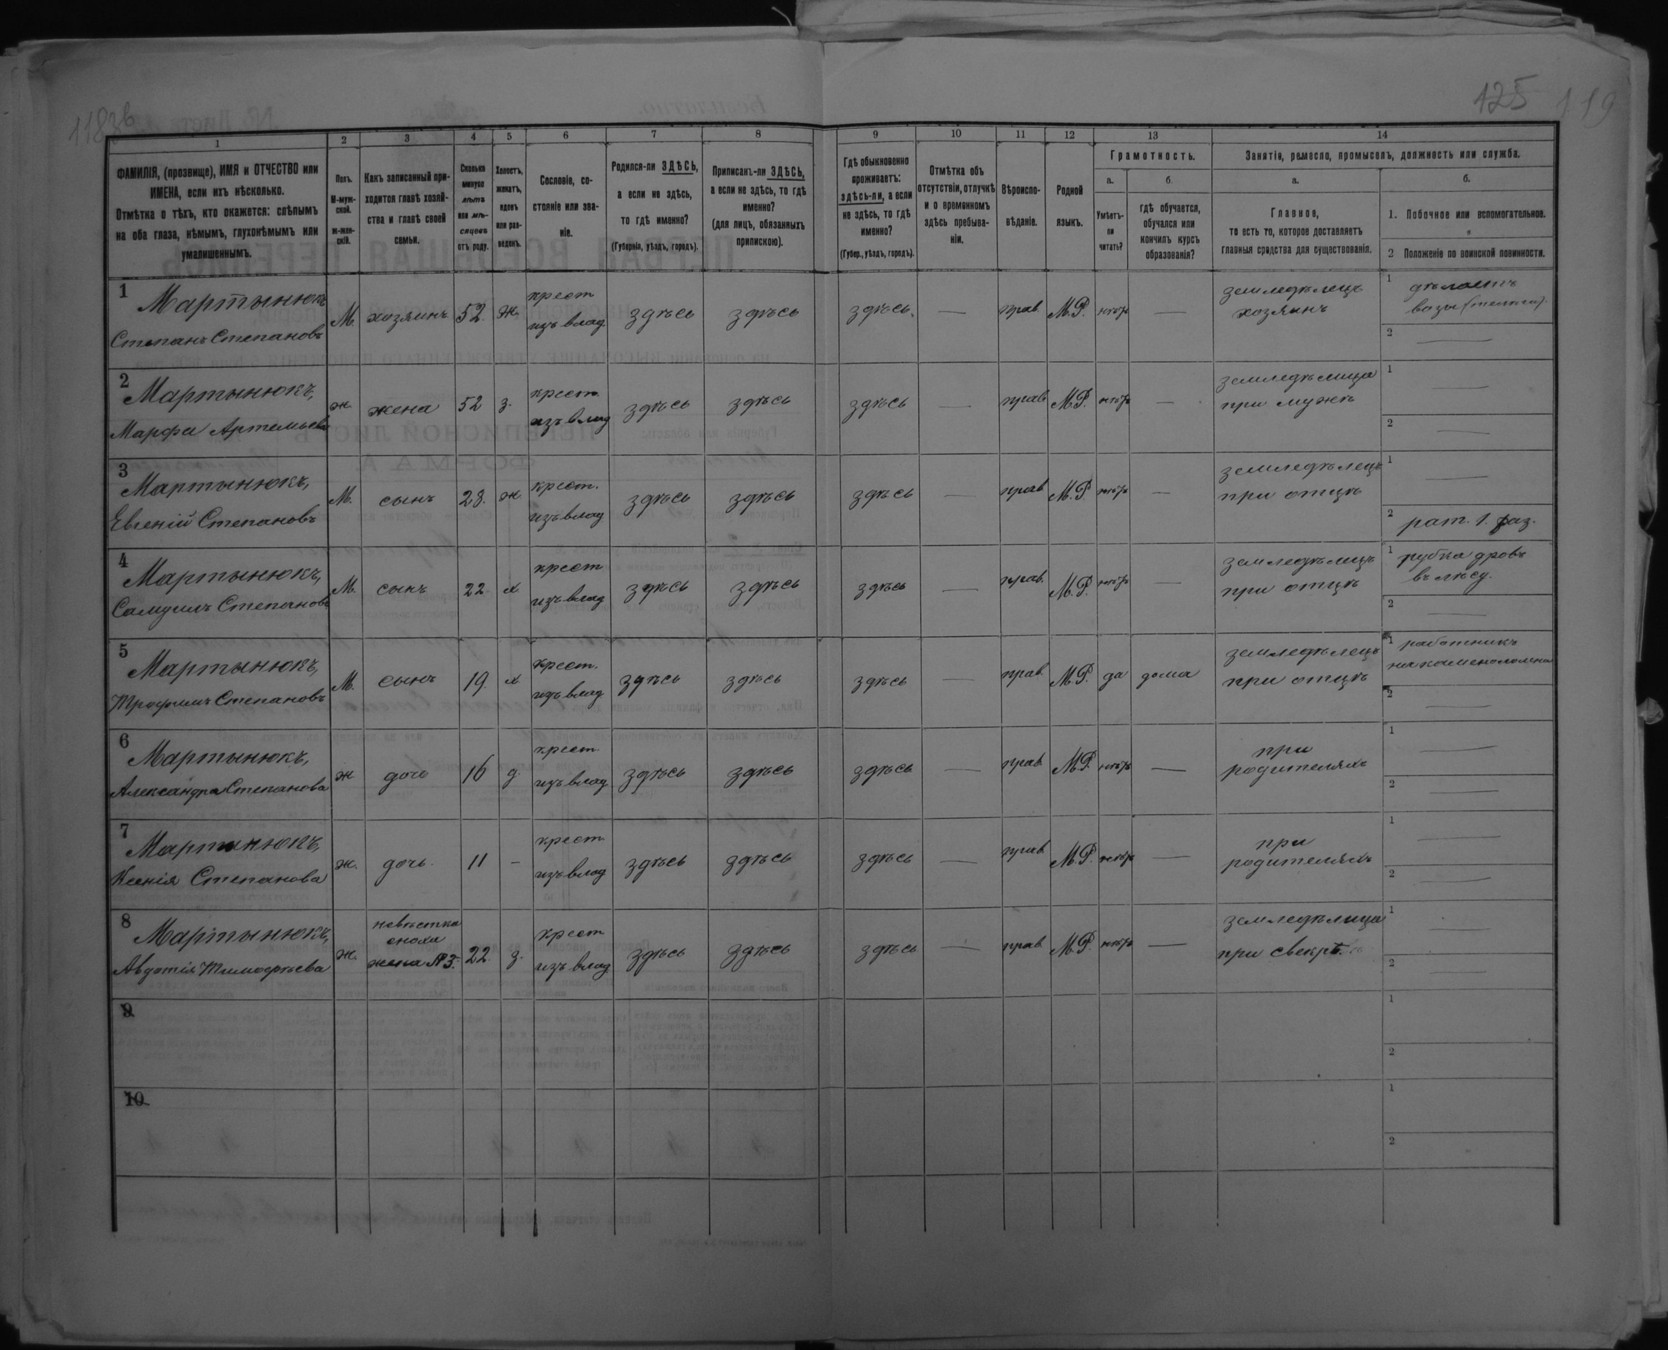 125 119
1 2 3 4 5 6 7 8 9 10 11 12 13 14
ФАМИЛІЯ, (прозвище), ИМЯ и ОТЧЕСТВО или
ИМЕНА, если ихъ нѣсколько.
Отмѣтка о тѣхъ, кто окажется: слѣпымъ
на оба глаза, нѣмымъ, глухонѣмымъ или
умалишеннымъ.
Полъ.
М-муж-
ской.
Ж-жен-
скій.
Какъ записанный при-
ходится главѣ хозяй-
ства и главѣ своей
семьи.
Сколько
минуло
лѣтъ
или мѣ-
сяцевъ
отъ роду.
Холостъ,
женатъ,
вдовъ
или раз-
веденъ.
Сословіе, со-
стояніе или зва-
ніе.
Родился-ли ЗДѢСЬ,
а если не здѣсь,
то гдѣ именно?
(Губернія, уѣздъ, городъ).
Приписанъ-ли ЗДѢСЬ,
а если не здѣсь, то гдѣ
именно?
(для лицъ, обязанныхъ
припискою).
Гдѣ обыкновенно
проживаетъ:
здѣсь-ли, а если
не здѣсь, то гдѣ
именно?
(Губер., уѣздъ, городъ).
Отмѣтка объ
отсутствіи, отлучкѣ
и о временномъ
здѣсь пребыва-
ніи.
Вѣроиспо-
вѣданіе.
Родной
языкъ.
Грамотность.
а.
Умѣетъ-
ли
читать?
б.
гдѣ обучается,
обучался или
кончилъ курсъ
образованія?
Занятіе, ремесло, промыселъ, должность или служба.
а.
Главное,
то есть то, которое доставляетъ
главныя средства для существованія.
б.
1. Побочное или вспомогательное.
2 Положеніе по воинской повинности.
1 Мартынюкъ
Степанъ Степановъ
М. хозяинъ 52. ж. крест изъ влад здѣсь здѣсь здѣсь. — прав М.Р. — земледѣлецъ
хозяинъ
1
2 —
2 Мартынюкъ,
Марфа Артемьева
ж. жена 52 з. крест изъ влад здѣсь здѣсь здѣсь — прав М.Р. — земледѣлица
при мужѣ
1 —
2 —
3 Мартынюкъ,
Евгеній Степановъ
М. сынъ 23. ж крест. изъ влад здѣсь здѣсь здѣсь — прав М.Р. — земледѣлецъ
при отцѣ
1 —
2 рат. 1. раз.
4 Мартынюкъ,
Самуилъ Степановъ
М. сынъ 22. х крест изъ влад здѣсь здѣсь здѣсь — прав. М.Р. — земледѣлецъ
при отцѣ
1 рубка дровъ
въ лѣсу.
2 —
5 Мартынюкъ,
Трофимъ Степановъ
М. сынъ 19. х крест. изъ влад здѣсь здѣсь здѣсь — прав М.Р. да дома земледѣлецъ
при отцѣ
1 работникъ
2 —
6 Мартынюкъ,
Александра Степанова
ж дочь 16 д. крест изъ влад здѣсь здѣсь здѣсь — прав М.Р. — при
родителяхъ
1 —
2 —
7 Мартынюкъ,
Ксенія Степанова
ж. дочь. 11 – крест изъ влад здѣсь здѣсь здѣсь — прав М.Р. — при
родителяхъ
1 —
2 —
8 Мартынюкъ,
Авдотія Тимофѣева
ж. невѣстка
жена №3. 22. з. крест изъ влад здѣсь здѣсь здѣсь — прав М.Р. — земледѣлица
при свекрѣ
1 —
2 —
9
1
2
10
1
2